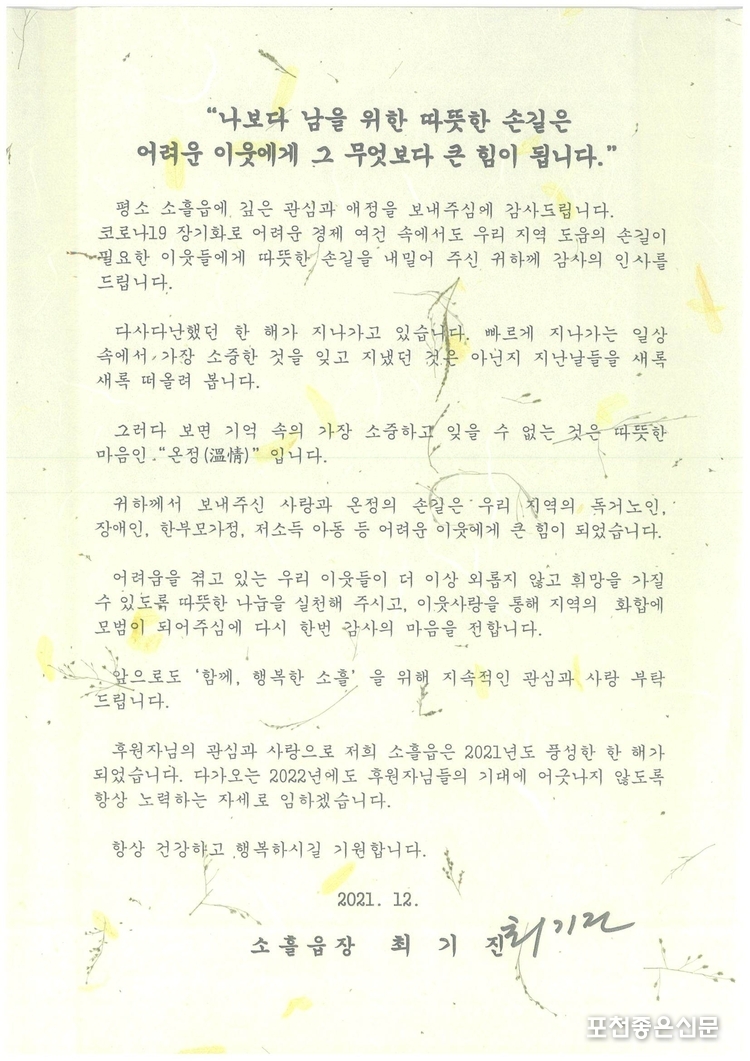 “나보다 남을 위한 따뜻한 손길은
어려운 이웃에게 그 무엇보다 큰 힘이 됩니다.”
평소 소흘읍에 깊은 관심과 애정을 보내주심에 감사드립니다.
코로나19 장기화로 어려운 경제 여건 속에서도 우리 지역 도움의 손길이
필요한 이웃들에게 따뜻한 손길을 내밀어 주신 귀하께 감사의 인사를
드립니다.
다사다난했던 한 해가 지나가고 있습니다. 빠르게 지나가는 일상
속에서 가장 소중한 것을 잊고 지냈던 것은 아닌지 지난날들을 새록
새록 떠올려 봅니다.
그러다 보면 기억 속의 가장 소중하고 잊을 수 없는 것은 따뜻한
마음인 “온정(溫情)” 입니다.
귀하께서 보내주신 사랑과 온정의 손길은 우리 지역의 독거노인,
장애인, 한부모가정, 저소득 아동 등 어려운 이웃에게 큰 힘이 되었습니다.
어려움을 겪고 있는 우리 이웃들이 더 이상 외롭지 않고 희망을 가질
수 있도록 따뜻한 나눔을 실천해 주시고, 이웃사랑을 통해 지역의 화합에
모범이 되어주심에 다시 한번 감사의 마음을 전합니다.
앞으로도 ‘함께, 행복한 소흘’ 을 위해 지속적인 관심과 사랑 부탁
드립니다.
후원자님의 관심과 사랑으로 저희 소흘읍은 2021년도 풍성한 한 해가
되었습니다. 다가오는 2022년에도 후원자님들의 기대에 어긋나지 않도록
항상 노력하는 자세로 임하겠습니다.
항상 건강하고 행복하시길 기원합니다.
2021. 12.
소흘읍장 최 기 진 최기진
포천좋은신문